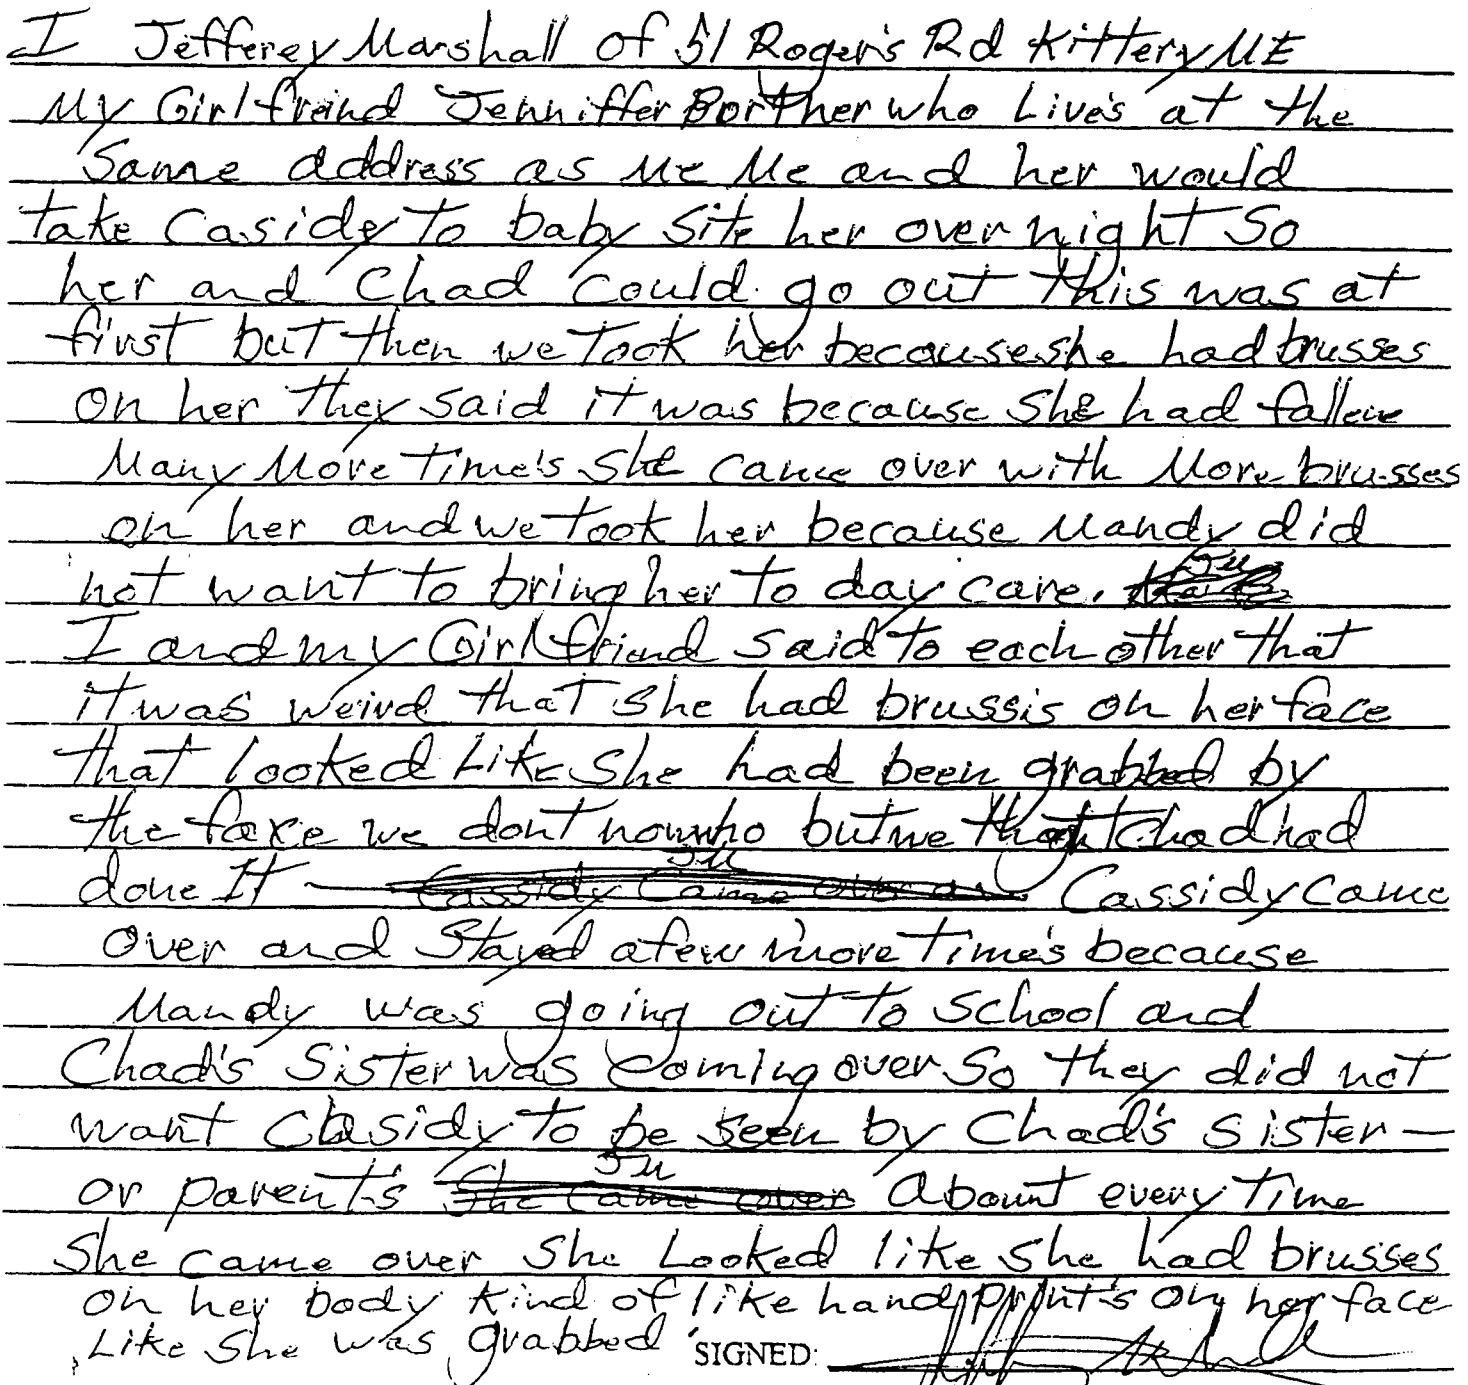 I Jefferey Marshall of 51 Roger's Rd Kittery ME
My Girlfreind Jenniffer Bortther who Live's at the
Same address as Me Me and her would
take Casidy To baby site her over night So
her and Chad could go out this was at
first but then we Took her because she had brusses
on her they said it was because she had fallene
Many More Time's She came over with More brusses
on her and we Took her because Mandy did
not want to bring her To day care. JM
I and my Girlfriend said to each other that
it was weird that she had brussis on her face
that looked Like She had been grabbed by
the faxe we dont now who but we thoght Chad had
done It — JM Cassidy Came over an Cassidy came
over and Stayed a few more Time's because
Mandy was going out To School and
Chad's Sister was Coming over So they did not
want Casidy To be seen by Chad's sister —
or parent's JM She Came over about every Time
She came over She Looked like she had brusses
on her body kind of like hand print's on her face
Like She was grabbed SIGNED: